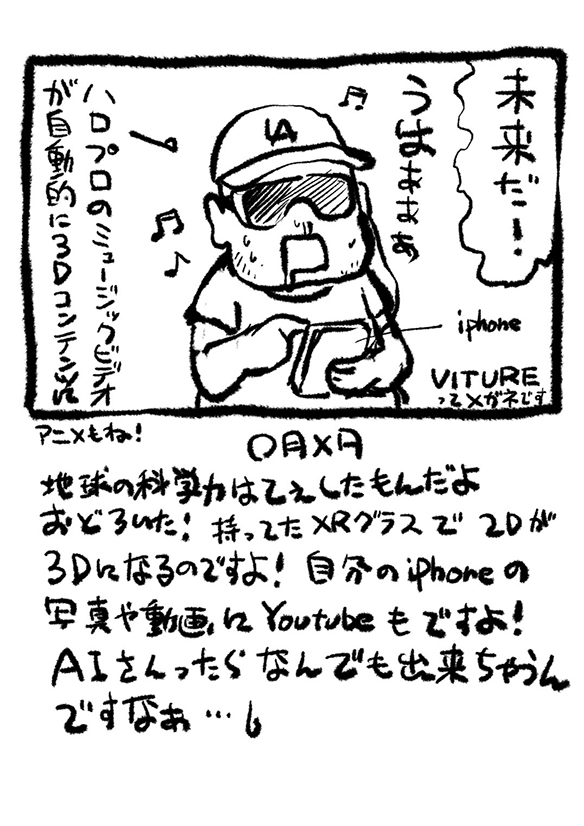 未来だ！
うはぁぁぁぁ
LA
ハロプロのミュージックビデオ
が自動的に3Dコンテンツに
iphone
VITURE
ってメガネです
アニメもね！
〇月×日
地球の科学力はてぇしたもんだよ
おどろいた！持ってたXRグラスで2Dが
3Dになるのですよ！自分のiphoneの
写真や動画にYoutubeもですよ！
AIさんったらなんでも出来ちゃうん
ですなぁ…